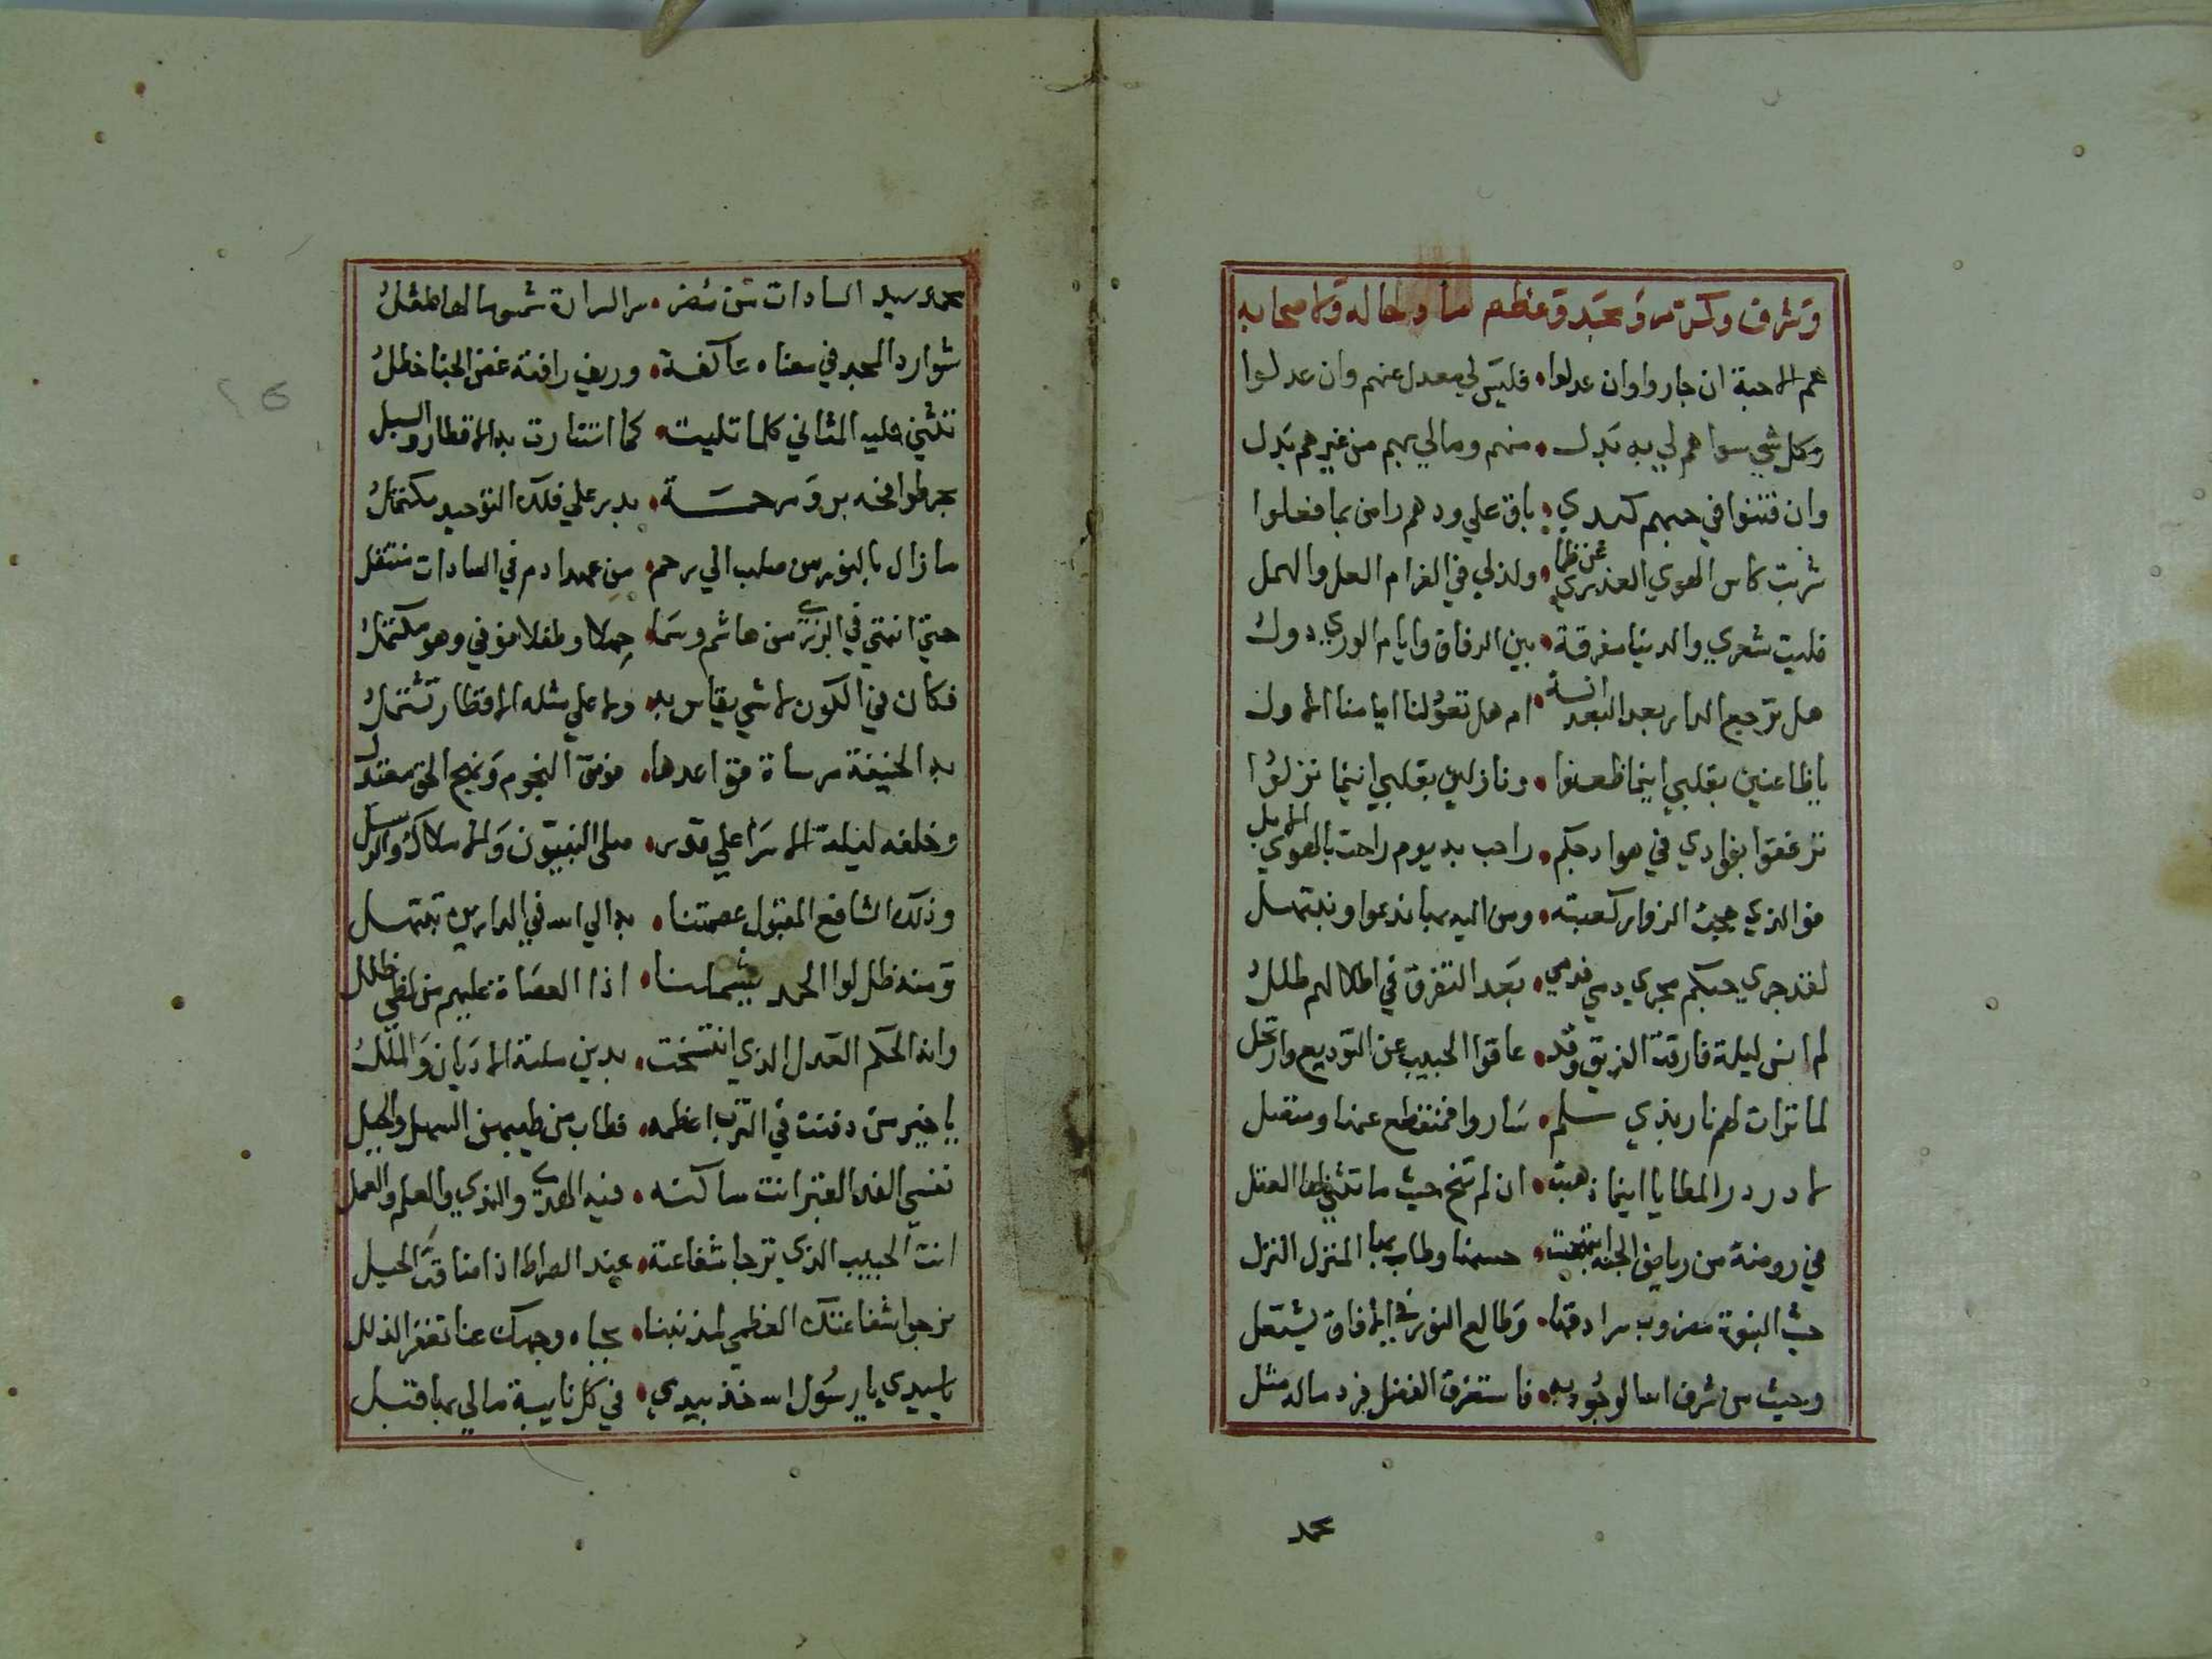 وشرف وكرم ومجد وعظم
هم الاحبة ان جاروا وان عدلوا • فليس لي معدل عنهم وان عدلوا
وكل شي سواهم لي به بدل • منهم ومالي بهم من غيرهم بدل
وان فتنوا في حبهم كبدي • باق علي ودهم راض بما فعلوا
شربت كاس الهوي العذري عن ظما • ولذلي في الغرام العل والنهل
فليت شعري والدنيا مفرقة • بين الرفاق وايام الوري دول
هل ترجع الدار بعد البعد انسة • ام هل تعود لنا ايامنا الاول
يا ظاعنين بقلبي اينما ظعنوا • ونازلين بقلبي اينما نزلوا
ترفقوا بفوادي في هوادجكم • راحت به يوم راحت بالهوي الابل
فو الذي حجت الزوار كعبته • ومن اليه بها ندعوا ونبتهل
لقد جري حبكم مجري دمي فدمي • بعد التفرق في اطلالهم طلل
لم انس ليلة فارقت الفريق وقد • عاقوا الحبيب عن التوديع وارتحل
لما تراات لهم نار بذي سلم • ساروا فمنقطع عنها ومتصل
لا در در المطايا اينما ذهبت • ان لم تنخ حيث ما تثني لها العقل
في روضة من رياض الجنة ابتهجت • حسنا وطاب بها المنزل النزل
حيث النبوة مضروب سرادقها • وطالع النور في الافاق يشتعل
وحيث من شرف الله الوجود به • فاستغرق الفضل فرد ماله مثل
محمد
محمد سيد السادات من مضر • سر السراة شموسا لها طفل
شوارد المجد في مغناه عاكفة • وريف رافته غض الجنا خظل
تثني عليه المثاني كلما تليت • كما استنارت به الاقطار والسبل
بحر طوافحه بر ومرحمة • بدر علي فلك التوحيد مكتمل
ما زال بالنور من صلب الي رحم • من عهد ادم في السادات منتقل
حتي انتهي في الذري من هاشم وسما • حملا وطفلا فوفي وهو مكتمل
فكان في الكون لا شي يقاس به • ولا علي مثله الاقطار تشتمل
به الحنيفة مرساة قواعدها • فوق النجوم ونهج الحق معتدل
وخلفه ليلة الاسرا علي قدس • صلي النبيون والاملاك والرسل
وذلك الشافع المقبول عصمتنا • به الي الله في الدارين نبتهل
ومنه ظل لوا الحمد يشملنا • اذا العصاة عليهم من لظي ظلل
وانه الحكم العدل الذي انتسخت • بدين ملته الاديان والملل
يا خير من دفنت في الترب اعظمه • فطاب من طيبهن السهل والجبل
نفسي الفدا لقبر انت ساكنه • فيه الهدي والندي والعلم والعمل
انت الحبيب الذي ترجا شفاعته • عند الصراط اذا ضاقت الحيل
نرجوا شفاعتك العظمي لمذنبنا • بجاه وجهك عنا تغفر الزلل
يا سيدي يا رسول الله خذ بيدي • في كل نايبة مالي بها قبل